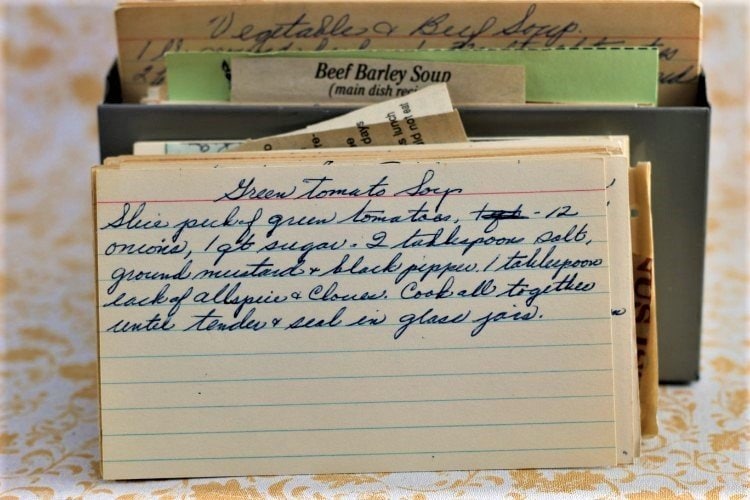 Vegetables & Beef Soup.
Beef Barley Soup
(main dish reci
uld not eat
s lunch
days
Green tomato Soup
Slice peck of green tomatoes, - 12
onions, 1 qt sugar - 2 tablespoons salt,
ground mustard & black pepper, 1 tablespoon
each of allspice & cloves. Cook all together
until tender & seal in glass jars.